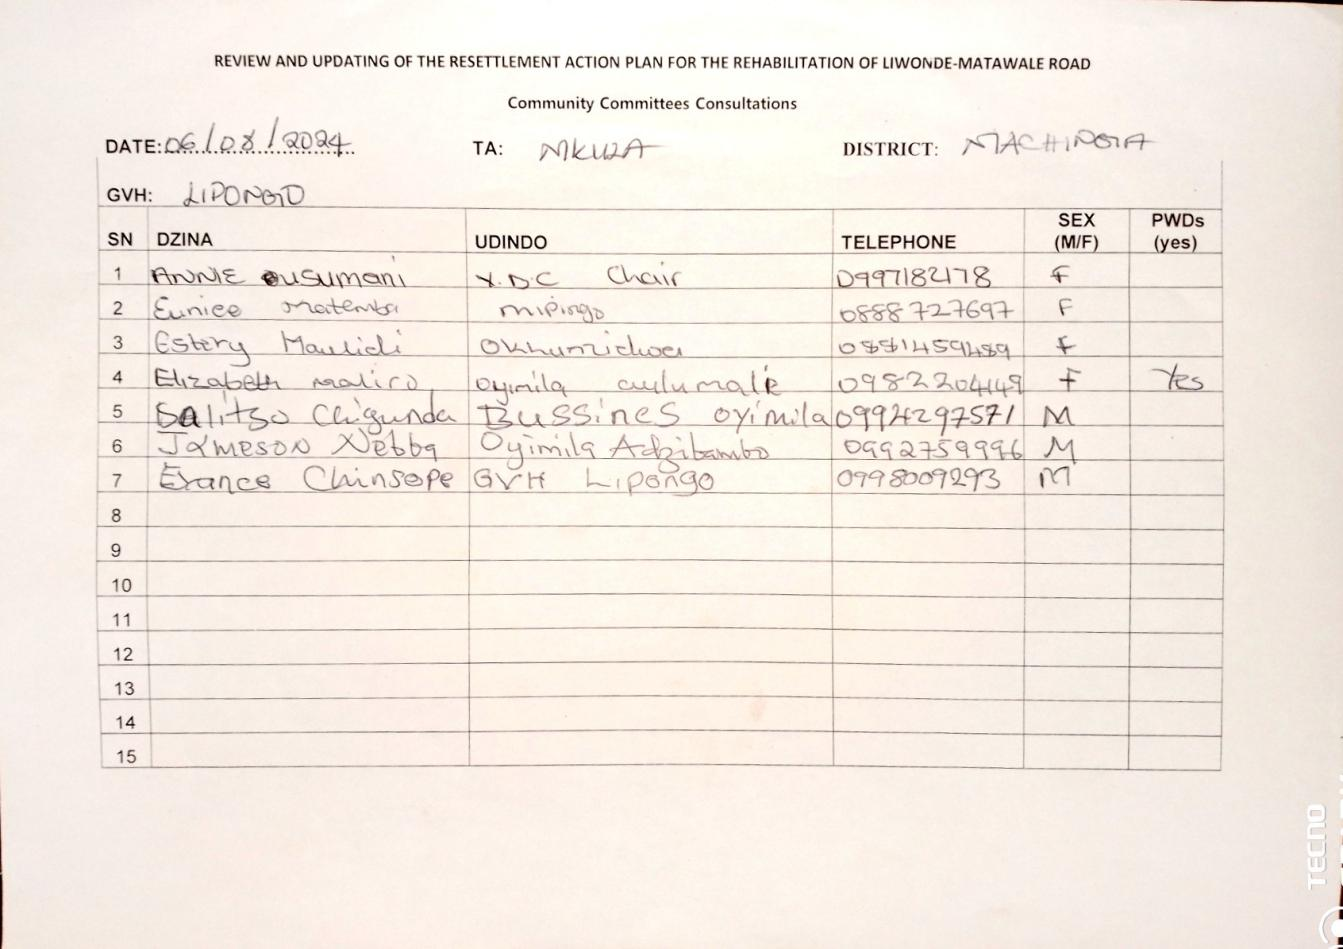 REVIEW AND UPDATING OF THE RESETTLEMENT ACTION PLAN FOR THE REHABILITATION OF LIWONDE-MATAWALE ROAD
Community Committees Consultations
DATE: 06/08/2024 TA: MKULA DISTRICT: MACHINGA
GVH: LIPONGO
SN DZINA UDINDO TELEPHONE SEX (M/F) PWDs (yes)
1 ANNIE usumani V.D.C Chair 0997182178 F
2 Eunice Matemba mipingo 0888727697 F
3 Estery Maulidi Okhumidwa 0881459489 F
4 Elizabeth maliro oyimila aulumale 0982204149 F Yes
5 Salitso Chigunda Bussines oyimila 0994297571 M
6 Jameson Oyimila Adzibambo 0992759996 M
7 Exance Chinsope GVH Lipongo 0998009293 M
8
9
10
11
12
13
14
15
TECNO